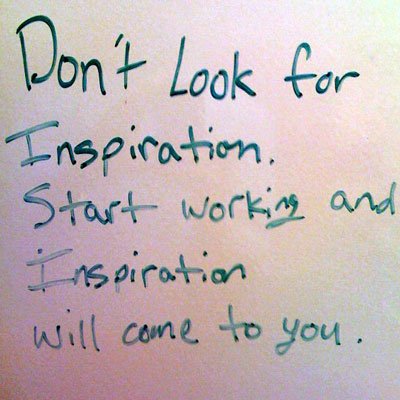 Don't Look for
Inspiration.
Start working and
Inspiration
will come to you.